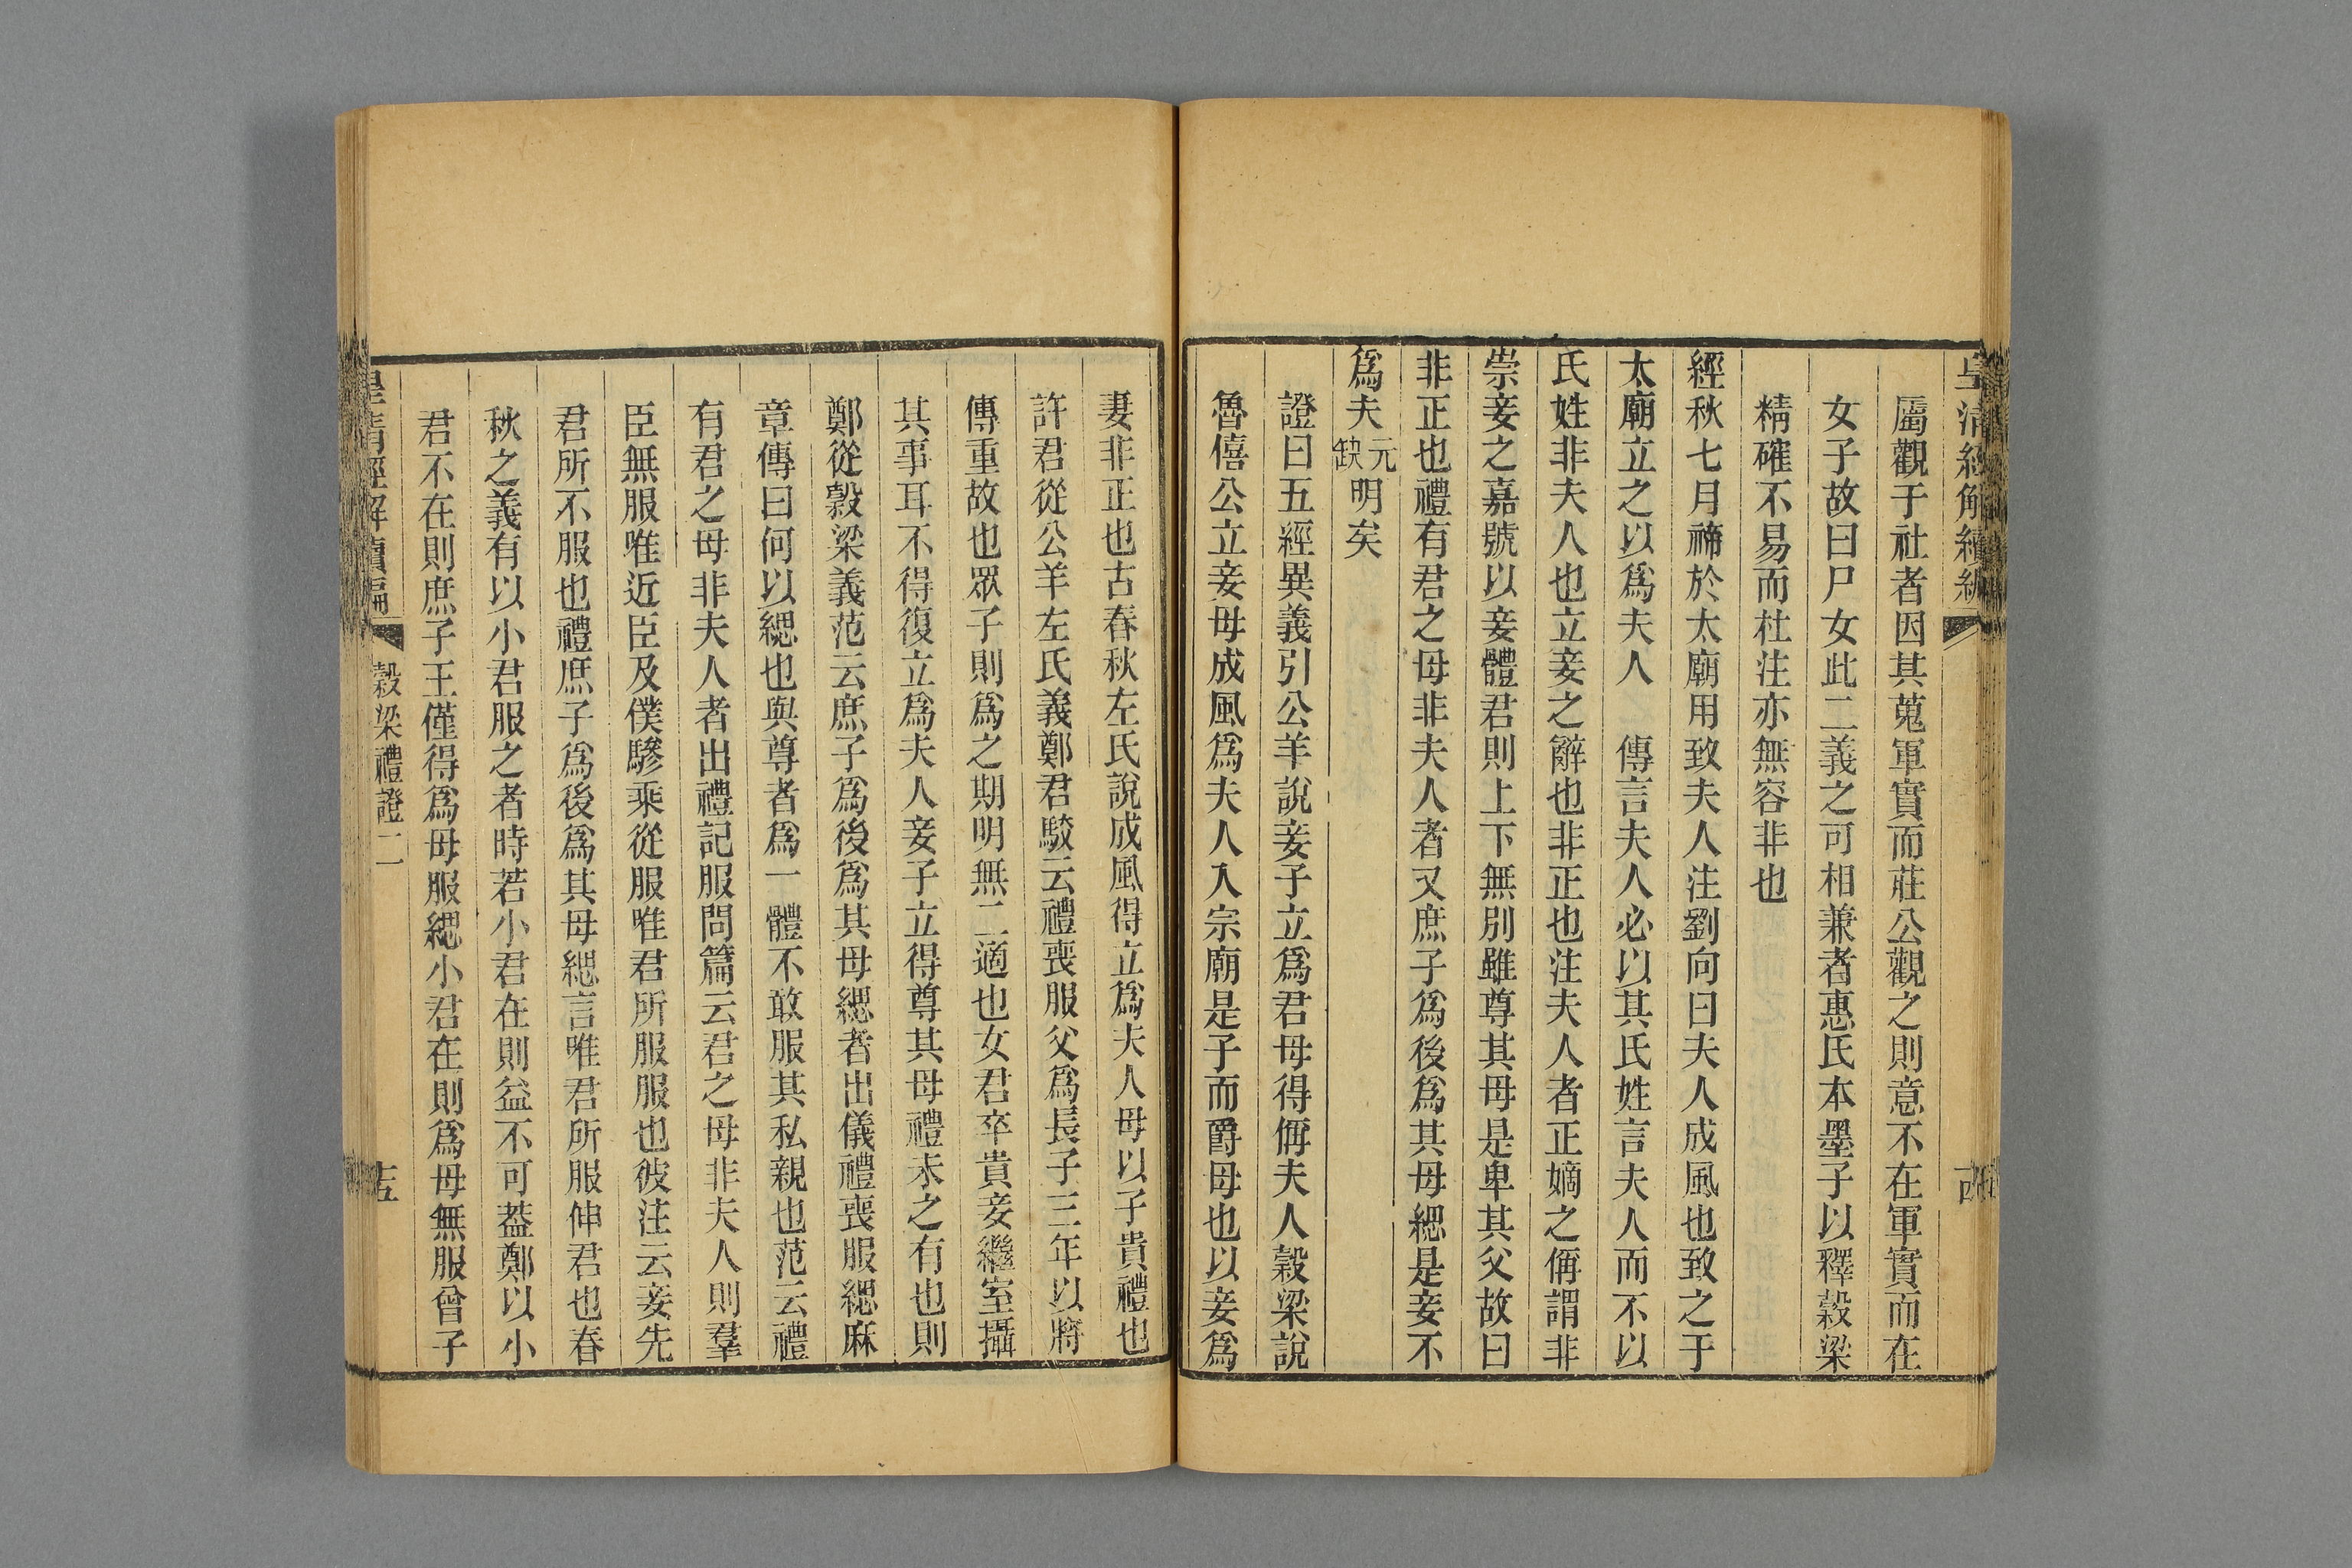 皇清經解續編
屬觀于社者因其蒐軍實而莊公觀之則意不在軍實而在
女子故曰尸女此二義之可相兼者惠氏本墨子以釋穀梁
精確不易而杜注亦無容非也
經秋七月禘於太廟用致夫人注劉向曰夫人成風也致之于
太廟立之以爲夫人 傳言夫人必以其氏姓言夫人而不以
氏姓非夫人也立妾之辭也非正也注夫人者正嫡之偁謂非
崇妾之嘉號以妾體君則上下無別雖尊其母是卑其父故曰
非正也禮有君之母非夫人者又庶子爲後爲其母緦是妾不
爲夫元缺明矣
證曰五經異義引公羊說妾子立爲君母得偁夫人穀梁說
魯僖公立妾母成風爲夫人入宗廟是子而爵母也以妾爲
妻非正也古春秋左氏說成風得立爲夫人母以子貴禮也
許君從公羊左氏義鄭君駮云禮喪服父爲長子三年以將
傳重故也眾子則爲之期明無二適也女君卒貴妾繼室攝
其事耳不得復立爲夫人妾子立得尊其母禮未之有也則
鄭從穀梁義范云庶子爲後爲其母緦者出儀禮喪服緦麻
章傳曰何以緦也與尊者爲一體不敢服其私親也范云禮
有君之母非夫人者出禮記服問篇云君之母非夫人則羣
臣無服唯近臣及僕驂乘從服唯君所服服也彼注云妾先
君所不服也禮庶子爲後爲其母緦言唯君所服伸君也春
秋之義有以小君服之者時若小君在則益不可葢鄭以小
君不在則庶子王僅得爲母服緦小君在則爲母無服曾子
皇清經解續編 穀梁禮證二